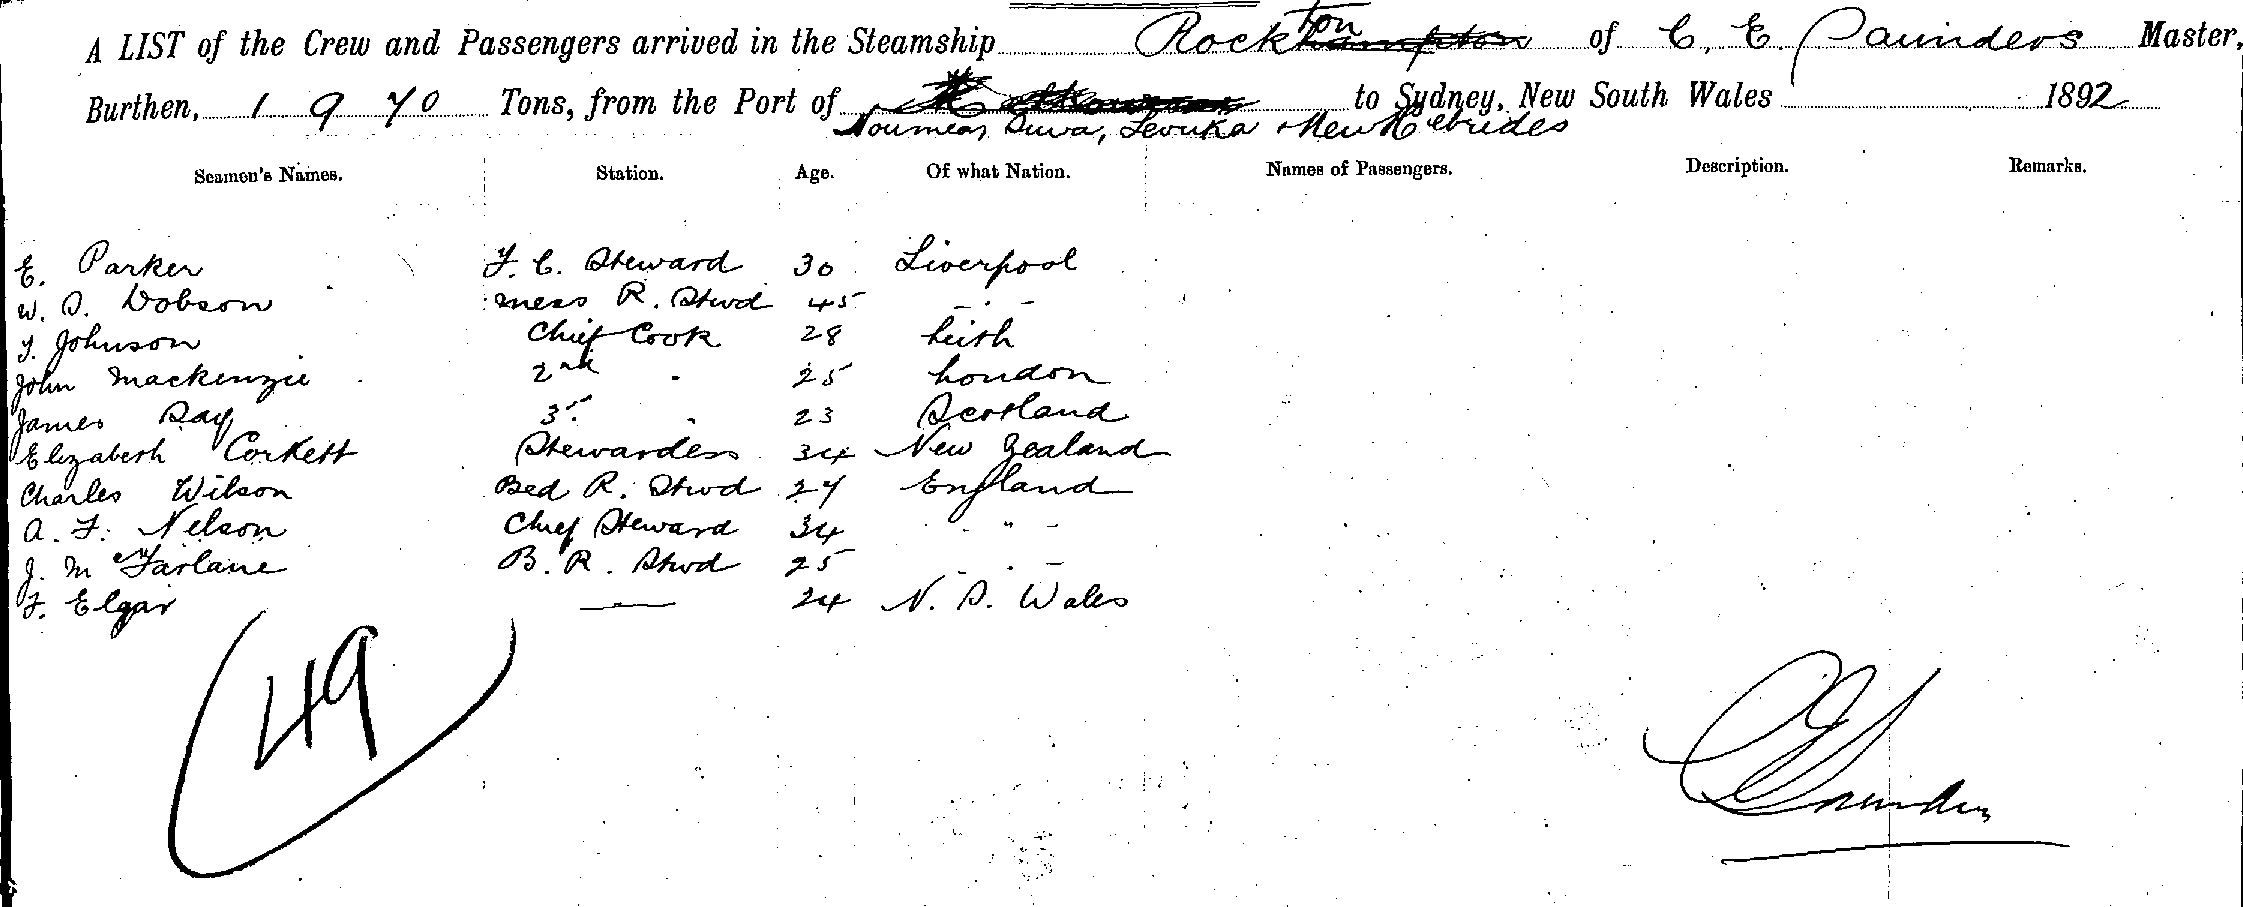 A LIST of the Crew and Passengers arrived in the Steamship Rockton of C. E. Saunders Master,
Burthen, 1970 Tons, from the Port of to Sydney, New South Wales 1892
Noumea, Suva, Levuka & New Hebrides
Seamen's Names. Station. Age. Of what Nation. Names of Passengers. Description. Remarks.
E. Parker F. C. Steward 30 Liverpool
W. S. Dobson Mess R. Stwd 45 - . -
F. Johnson Chief Cook 28 Leith
John Mackenzie 2nd " 25 London
James Day 3rd " 23 Scotland
Elizabeth Corkett Stewardess 34 New Zealand
Charles Wilson Bed R. Stwd 27 England
A. F. Nelson Chief Steward 34 - " -
J. McFarlane B. R. Stwd 25 - . -
F. Elgar — 24 N. S. Wales
49
C E Saunders